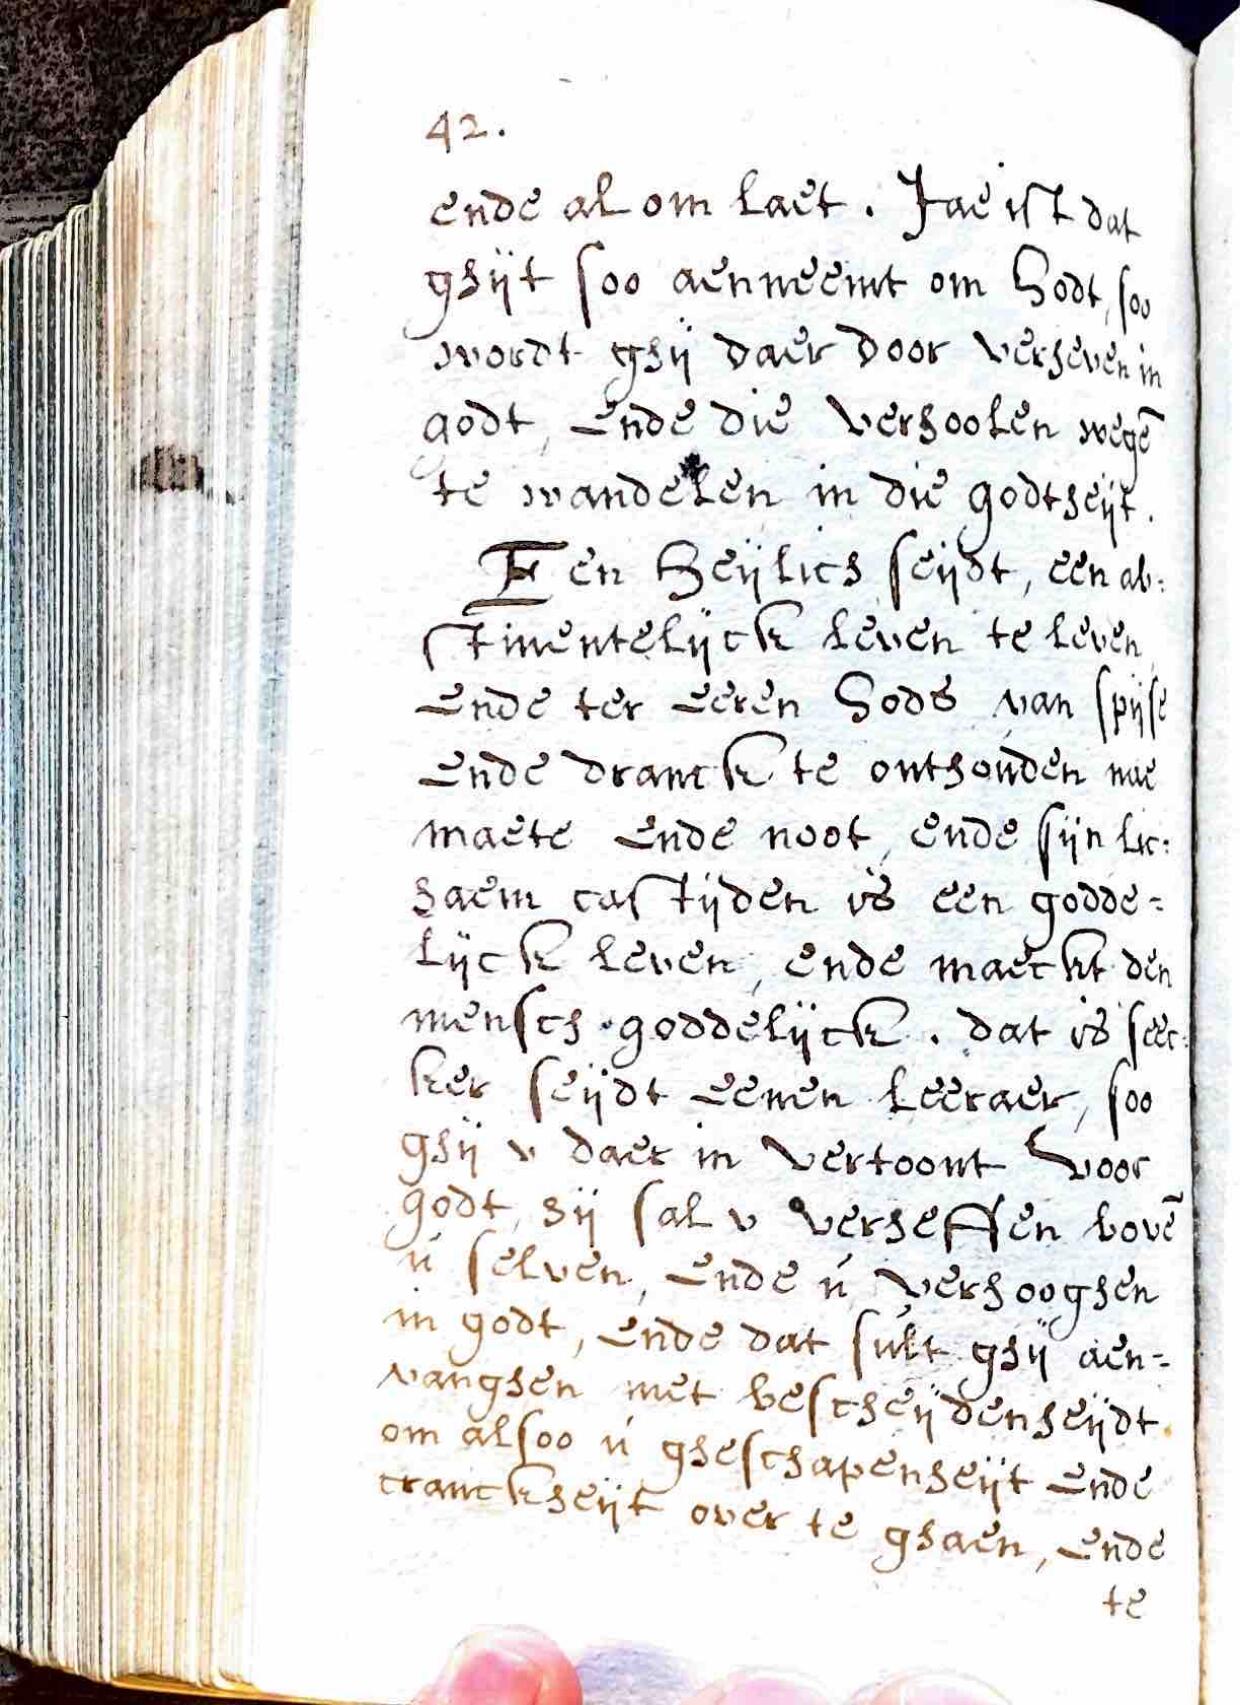 42.
ende al om laet. Jae ist dat
ghijt soo aenneemt om Godt, soo
wordt ghij daer door verheven in
godt, ende die verhoolen wegē
te wandelen in die godtheijt.
Een Heijlich seijdt, een ab:
stinentelijck leven te leven
ende ter eeren Gods van spijse
ende dranck te onthouden nae
maete ende noot, ende sijn lic:
haem castijden is een godde=
lijck leven, ende maeckt den
mensch goddelijck. dat is seec:
ker seijdt eenen leeraer, soo
ghij v daer in vertoont voor
godt, hij sal v verheffen bovē
ú selven, ende ú verhooghen
in godt, ende dat súlt ghij aen=
vanghen met bescheijdenheijdt.
om alsoo ú gheschapenheijt ende
cranckheijt over te ghaen, ende
te